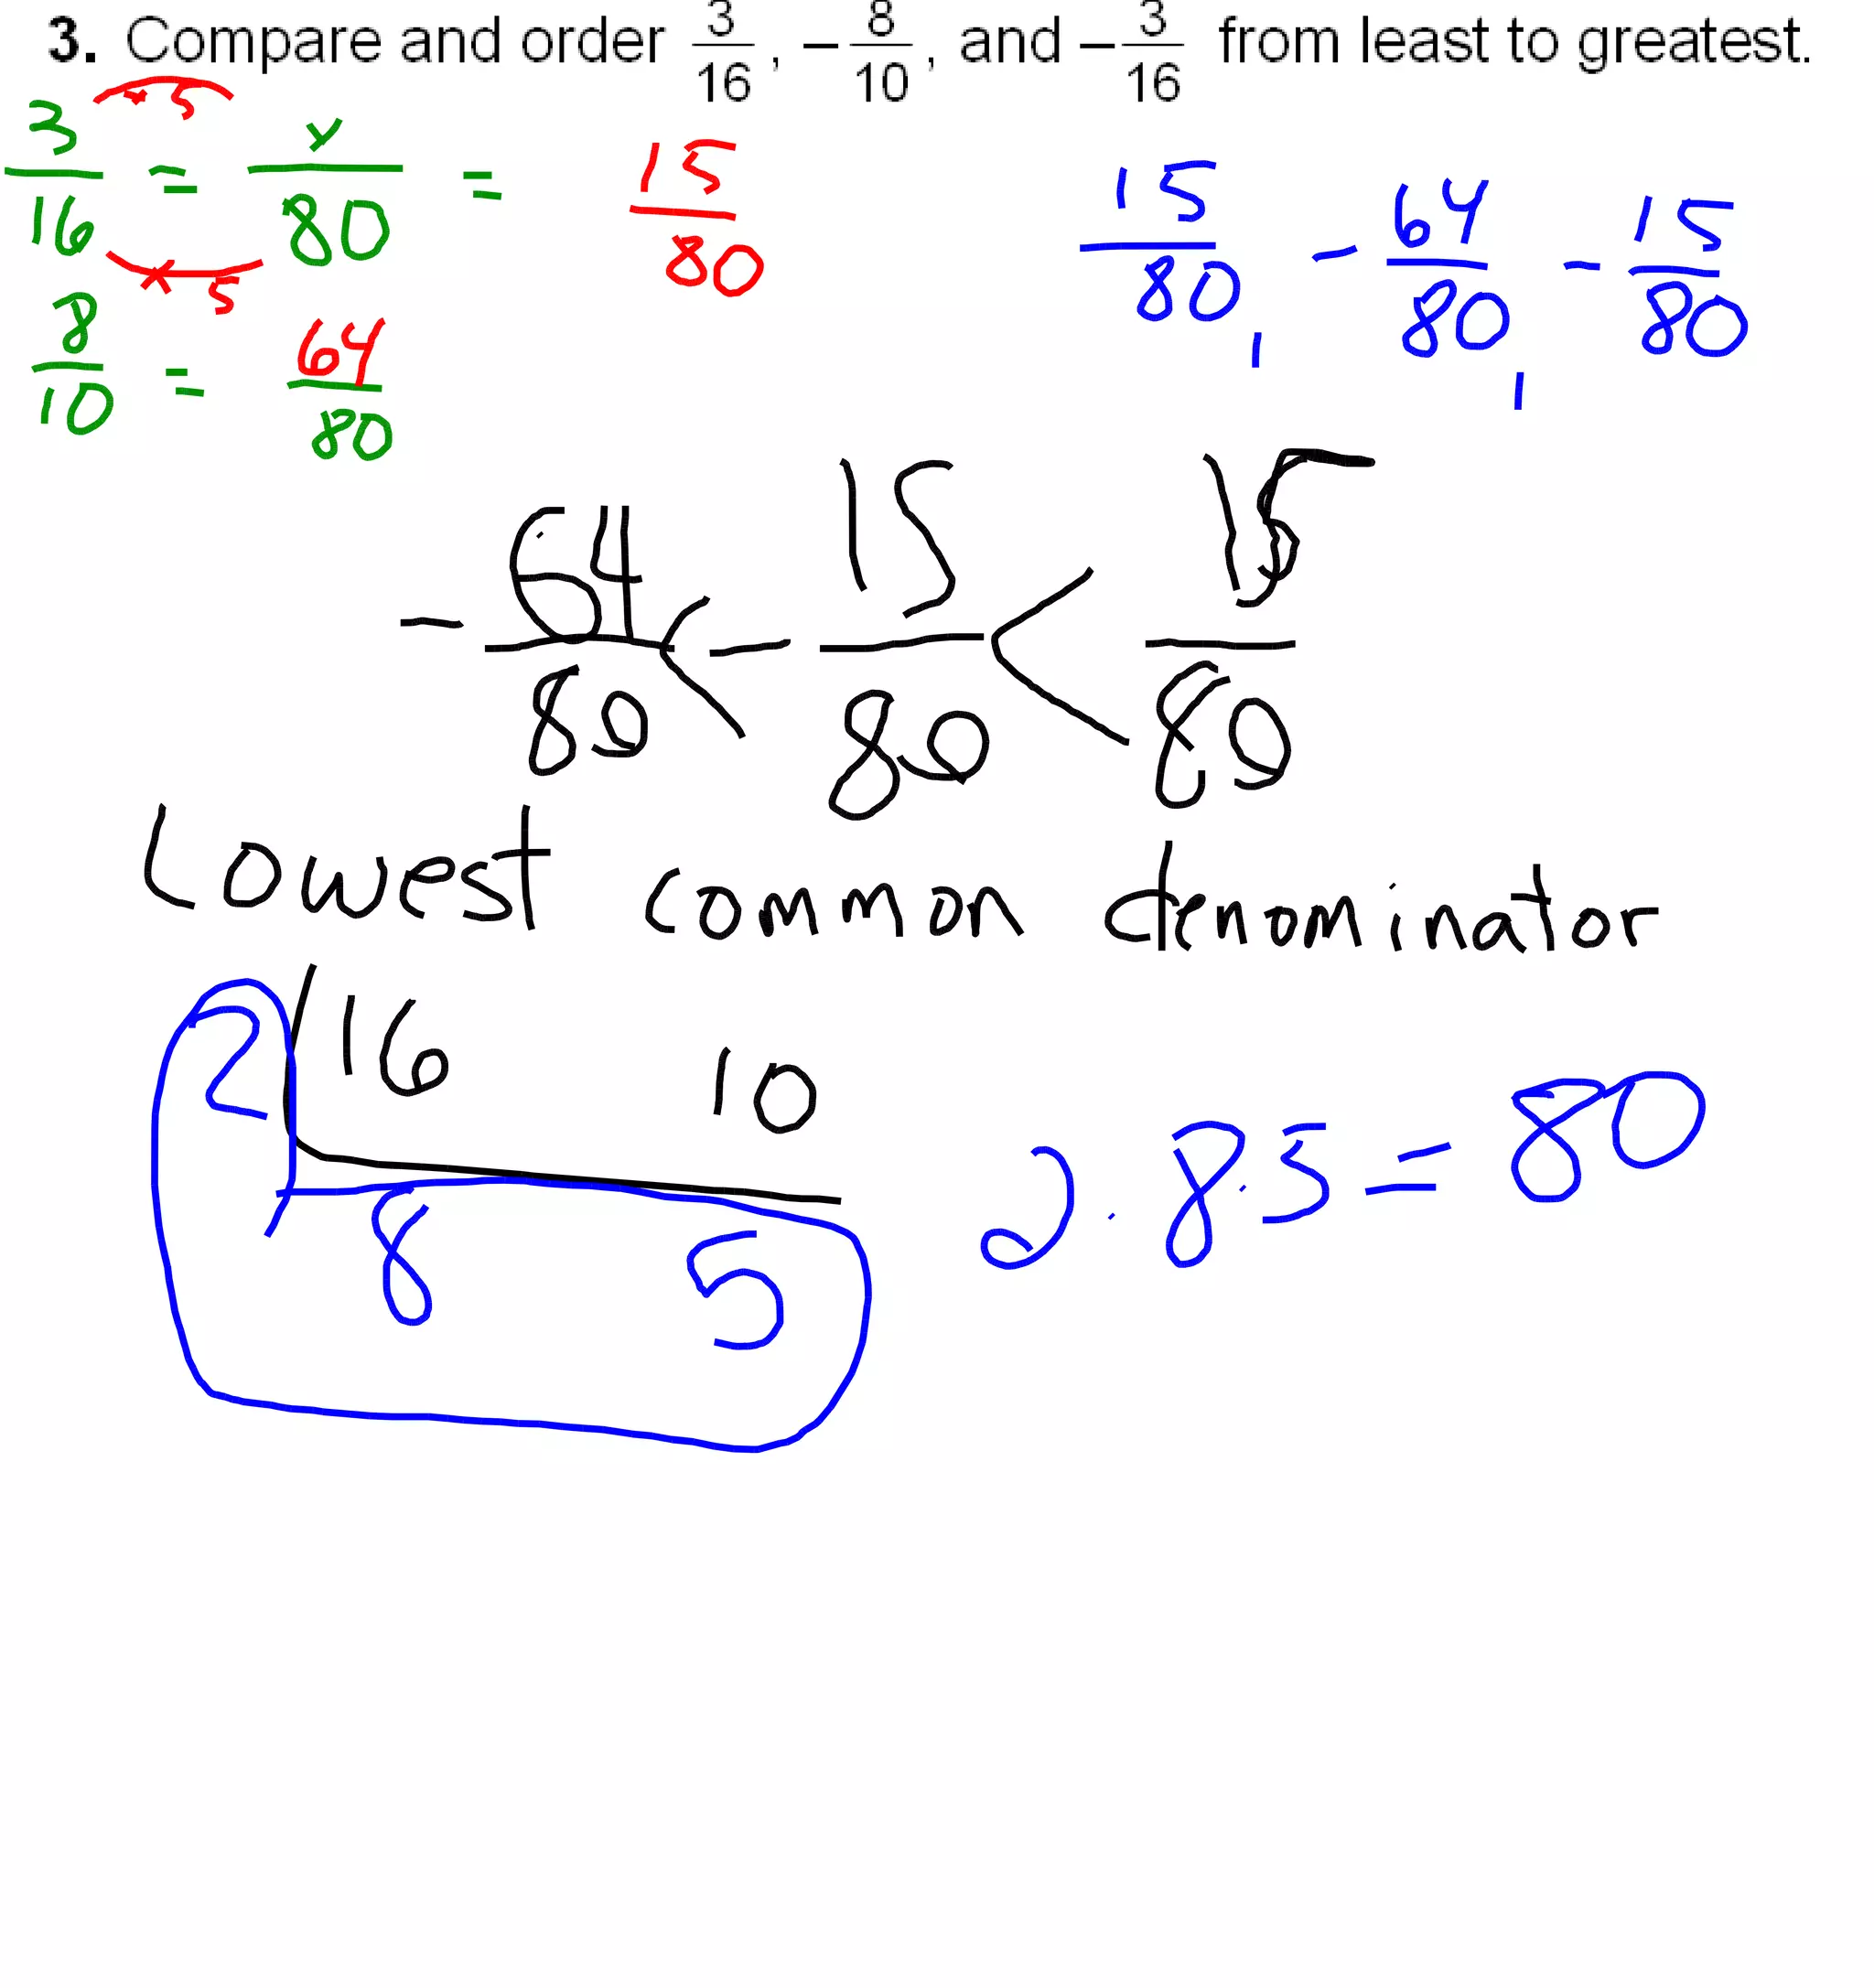 3. Compare and order 3/16, -8/10, and -3/16 from least to greatest.
3/16 = x/80 = 15/80
×5
×5
8/10 = 64/80
15/80, -64/80, -15/80
-64/80 < -15/80 < 15/80
Lowest common denominator
2 16 10
8 5
2 · 8 · 5 = 80